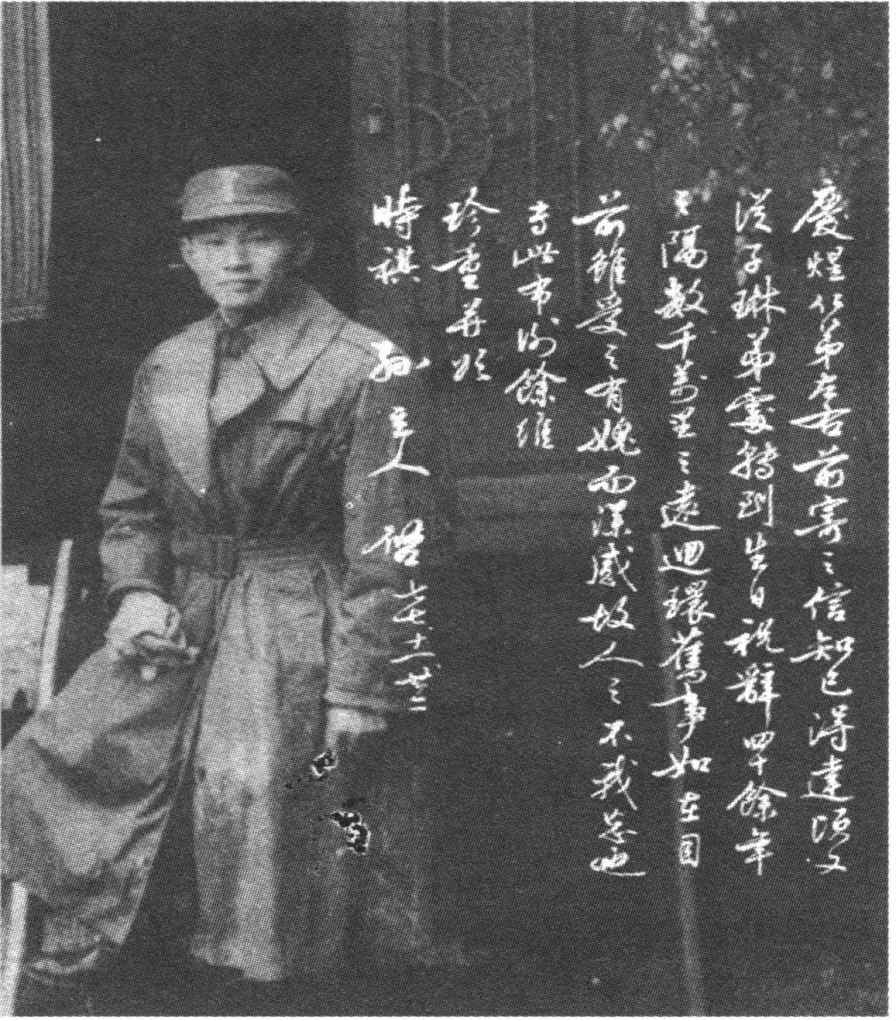 慶煌仁弟左右前寄之信知已得達頃又
從子琳弟處轉到生日祝辭四十餘年
之隔數千萬里之遠迴環舊事如在目
前雖受之有愧而深感故人之不我忘也
專此布謝餘維
珍重并頌
時祺 孫立人 啓 七十一 廿二